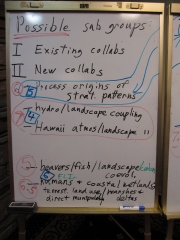 Possible sub groups:
I Existing collabs
II New collabs
origins of
strat. patterns
hydro/landscape coupling
Hawaii atmos/landscape "
beavers/fish/landscape
coevol.
humans & coastal wetlands
land use/
direct deltas